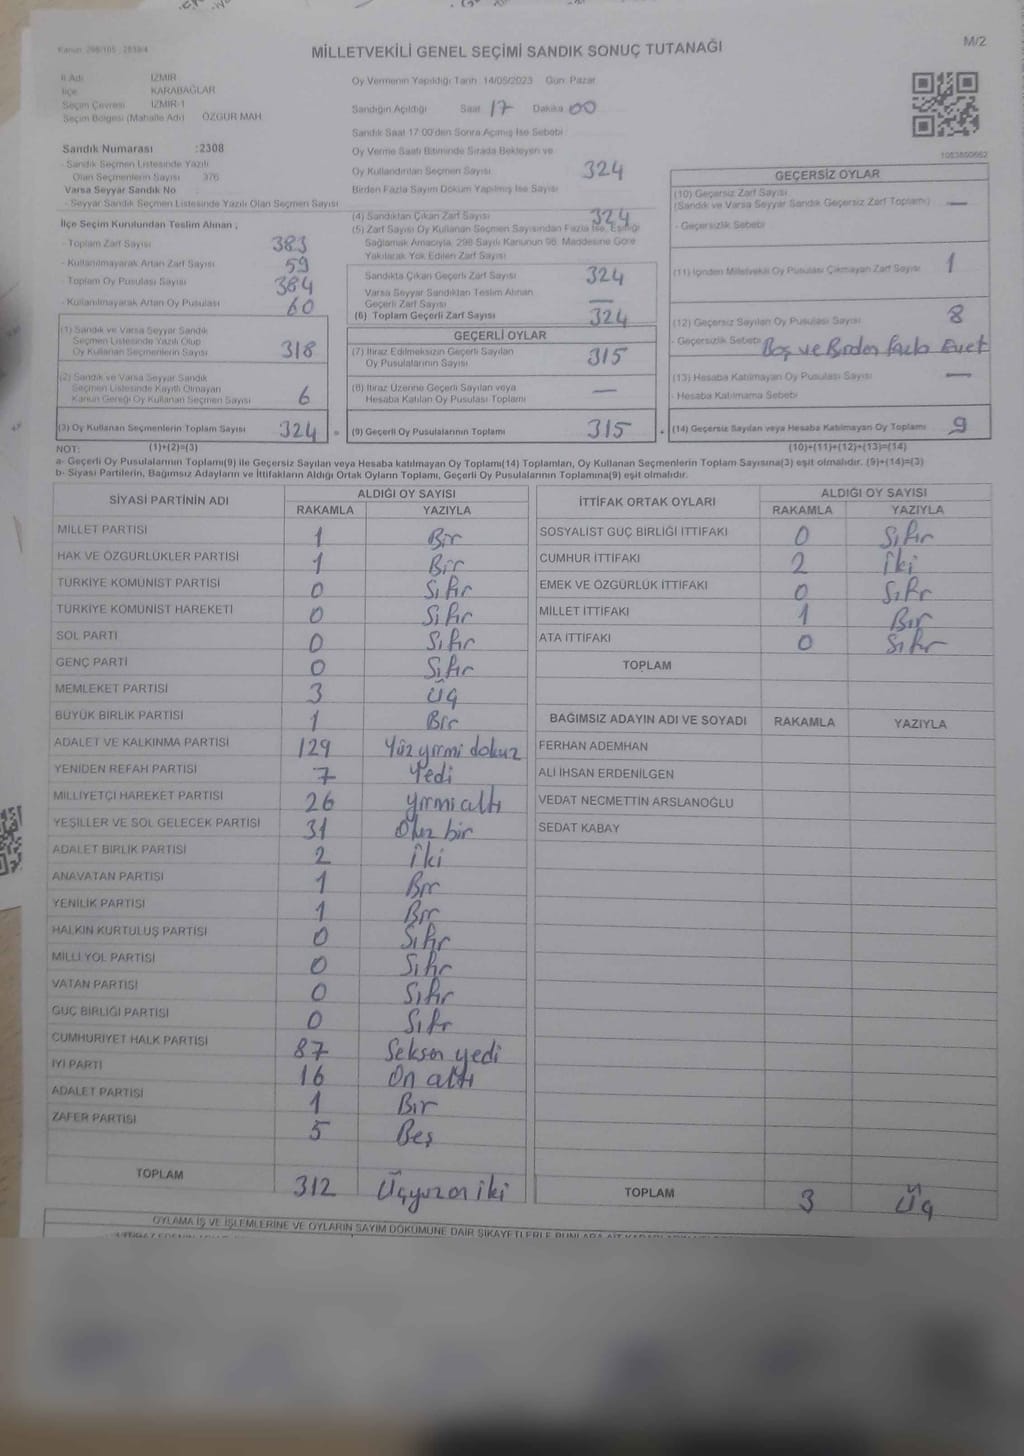 Kanun: 298/105 , 2839/4
MİLLETVEKİLİ GENEL SEÇİMİ SANDIK SONUÇ TUTANAĞI
M/2
İl Adı İZMİR
İlçe KARABAĞLAR
Seçim Çevresi İZMİR-1
Seçim Bölgesi (Mahalle Adı) ÖZGÜR MAH.
Sandık Numarası :2308
- Sandık Seçmen Listesinde Yazılı
Olan Seçmenlerin Sayısı 376
Varsa Seyyar Sandık No
- Seyyar Sandık Seçmen Listesinde Yazılı Olan Seçmen Sayısı
İlçe Seçim Kurulundan Teslim Alınan ;
- Toplam Zarf Sayısı 383
- Kullanılmayarak Artan Zarf Sayısı 59
- Toplam Oy Pusulası Sayısı 384
- Kullanılmayarak Artan Oy Pusulası 60
(1) Sandık ve Varsa Seyyar Sandık
Seçmen Listesinde Yazılı Olup
Oy Kullanan Seçmenlerin Sayısı 318
(2) Sandık ve Varsa Seyyar Sandık
Seçmen Listesinde Kayıtlı Olmayan
Kanun Gereği Oy Kullanan Seçmen Sayısı 6
(3) Oy Kullanan Seçmenlerin Toplam Sayısı 324 =
Oy Vermenin Yapıldığı Tarih 14/05/2023 Gün: Pazar
Sandığın Açıldığı Saat 17 Dakika 00
Sandık Saat 17:00'den Sonra Açılmış İse Sebebi
Oy Verme Saati Bitiminde Sırada Bekleyen ve
Oy Kullandırılan Seçmen Sayısı 324
Birden Fazla Sayım Döküm Yapılmış İse Sayısı
(4) Sandıktan Çıkan Zarf Sayısı 324
(5) Zarf Sayısı Oy Kullanan Seçmen Sayısından Fazla İse, Eşitliği
Sağlamak Amacıyla, 298 Sayılı Kanunun 98. Maddesine Göre
Yakılarak Yok Edilen Zarf Sayısı
Sandıkta Çıkan Geçerli Zarf Sayısı 324
Varsa Seyyar Sandıktan Teslim Alınan
Geçerli Zarf Sayısı —
(6) Toplam Geçerli Zarf Sayısı 324
GEÇERLİ OYLAR
(7) İtiraz Edilmeksizin Geçerli Sayılan
Oy Pusulalarının Sayısı 315
(8) İtiraz Üzerine Geçerli Sayılan veya
Hesaba Katılan Oy Pusulası Toplamı —
(9) Geçerli Oy Pusulalarının Toplamı 315 +
1083800662
GEÇERSİZ OYLAR
(10) Geçersiz Zarf Sayısı
(Sandık ve Varsa Seyyar Sandık Geçersiz Zarf Toplamı) —
- Geçersizlik Sebebi
(11) İçinden Milletvekili Oy Pusulası Çıkmayan Zarf Sayısı 1
(12) Geçersiz Sayılan Oy Pusulası Sayısı 8
- Geçersizlik Sebebi Boş ve Birden Fazla Evet
(13) Hesaba Katılmayan Oy Pusulası Sayısı —
- Hesaba Katılmama Sebebi
(14) Geçersiz Sayılan veya Hesaba Katılmayan Oy Toplamı 9
NOT: (1)+(2)=(3) (10)+(11)+(12)+(13)=(14)
a- Geçerli Oy Pusulalarının Toplamı(9) ile Geçersiz Sayılan veya Hesaba katılmayan Oy Toplamı(14) Toplamları, Oy Kullanan Seçmenlerin Toplam Sayısına(3) eşit olmalıdır. (9)+(14)=(3)
b- Siyasi Partilerin, Bağımsız Adayların ve İttifakların Aldığı Ortak Oyların Toplamı, Geçerli Oy Pusulalarının Toplamına(9) eşit olmalıdır.
SİYASİ PARTİNİN ADI ALDIĞI OY SAYISI
RAKAMLA YAZIYLA
MİLLET PARTİSİ 1 Bir
HAK VE ÖZGÜRLÜKLER PARTİSİ 1 Bir
TÜRKİYE KOMÜNİST PARTİSİ 0 Sıfır
TÜRKİYE KOMÜNİST HAREKETİ 0 Sıfır
SOL PARTİ 0 Sıfır
GENÇ PARTİ 0 Sıfır
MEMLEKET PARTİSİ 3 Üç
BÜYÜK BİRLİK PARTİSİ 1 Bir
ADALET VE KALKINMA PARTİSİ 129 Yüzyirmi dokuz
YENİDEN REFAH PARTİSİ 7 Yedi
MİLLİYETÇİ HAREKET PARTİSİ 26 yirmi altı
YEŞİLLER VE SOL GELECEK PARTİSİ 31 Otuz bir
ADALET BİRLİK PARTİSİ 2 İki
ANAVATAN PARTİSİ 1 Bir
YENİLİK PARTİSİ 1 Bir
HALKIN KURTULUŞ PARTİSİ 0 Sıfır
MİLLİ YOL PARTİSİ 0 Sıfır
VATAN PARTİSİ 0 Sıfır
GÜÇ BİRLİĞİ PARTİSİ 0 Sıfır
CUMHURİYET HALK PARTİSİ 87 Seksen yedi
İYİ PARTİ 16 On altı
ADALET PARTİSİ 1 Bir
ZAFER PARTİSİ 5 Beş
TOPLAM 312 Üçyüzon iki
İTTİFAK ORTAK OYLARI ALDIĞI OY SAYISI
RAKAMLA YAZIYLA
SOSYALİST GÜÇ BİRLİĞİ İTTİFAKI 0 Sıfır
CUMHUR İTTİFAKI 2 İki
EMEK VE ÖZGÜRLÜK İTTİFAKI 0 Sıfır
MİLLET İTTİFAKI 1 Bir
ATA İTTİFAKI 0 Sıfır
TOPLAM
BAĞIMSIZ ADAYIN ADI VE SOYADI RAKAMLA YAZIYLA
FERHAN ADEMHAN
ALİ İHSAN ERDENİLGEN
VEDAT NECMETTİN ARSLANOĞLU
SEDAT KABAY
TOPLAM 3 Üç
OYLAMA İŞ VE İŞLEMLERİNE VE OYLARIN SAYIM DÖKÜMÜNE DAİR ŞİKAYETLERLE BUNLARA AİT